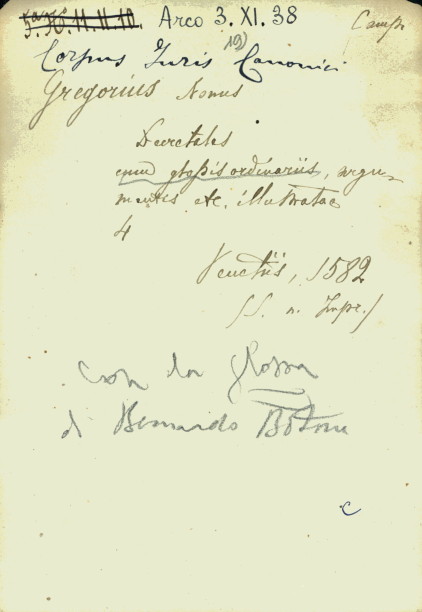 Arco 3. XI. 38
Camp
19)
Corpus Iuris Canonici
Gregorius Nonus
Decretales
cum glossis ordinariis, argu-
mentis etc. illustratae
4
Venetiis, 1582
(S. n. Impr.)
con la glossa
di Bernardo Botone
C